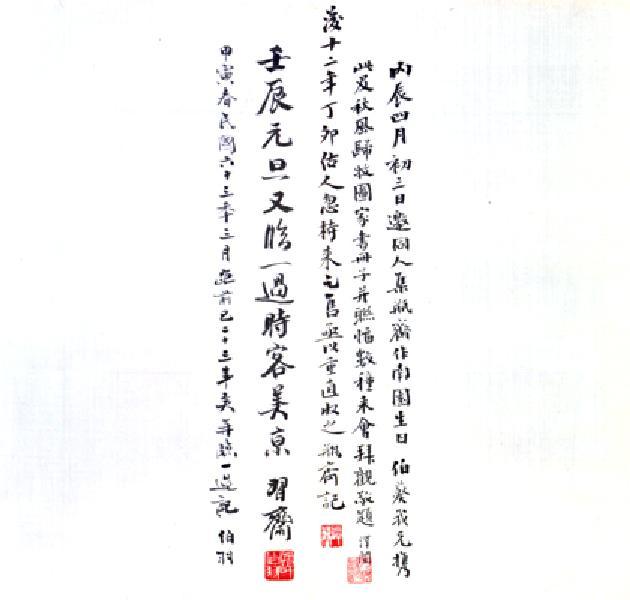 丙辰四月初三日邀同人集瓶齋作南園生日伯葵我兄攜
此及秋風歸牧圖家書冊子并聯幅數種來會拜觀敬題澤闓
後十二年丁卯估人忽持來之舊直收之瓶齋記
壬辰元旦又臨一過時客美京習齋
甲寅春民國六十三年三月距前已二十三年矣再臨一過記伯羽